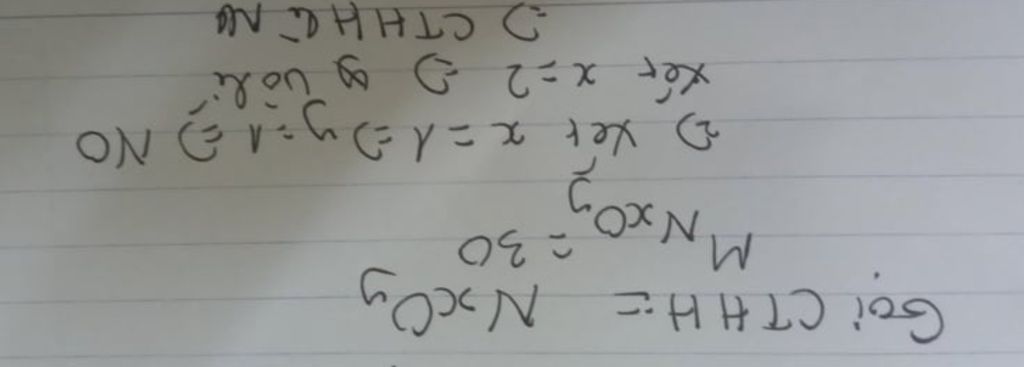 Gọi CTHH = NxOy
M NxOy = 30
=> xét x = 1 => y = 1 => NO
xét x = 2 => y vô lí
=> CTHH là NO